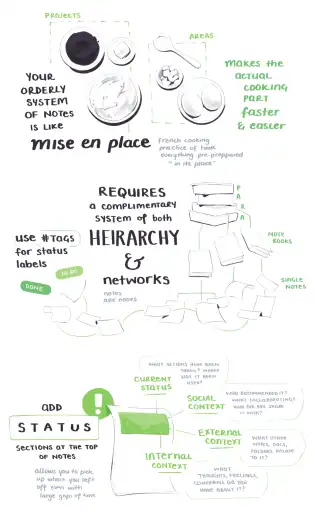 PROJECTS
AREAS
YOUR
ORDERLY
SYSTEM
OF NOTES
IS LIKE
mise en place
French cooking
practice of have
everything pre-prepared
"in its place"
makes the
actual
cooking
part
faster
& easier
REQUIRES
a complimentary
system of both
HEIRARCHY
&
networks
notes
are nodes
use #TAGS
for status
labels
TO DO
DONE
P
A
R
A
NOTE
BOOKS
SINGLE
NOTES
ADD
STATUS
SECTIONS AT THE TOP
OF NOTES
allows you to pick
up where you left
off even with
large gaps of time
!
CURRENT
STATUS
WHAT ACTIONS HAVE BEEN
USED?
SOCIAL
CONTEXT
WHO RECOMMENDED IT?
WHO'S COLLABORATING?
WITH?
EXTERNAL
CONTEXT
WHAT OTHER
NOTES, DOCS,
FOLDERS RELATE
TO IT?
Internal
CONTEXT
WHAT
THOUGHTS, FEELINGS,
CONCERNS DO YOU
HAVE ABOUT IT?